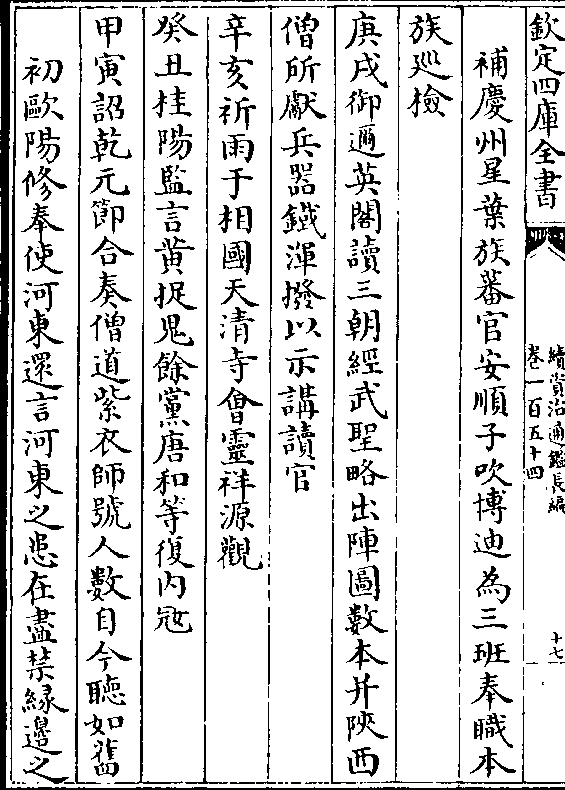 欽定四庫全書
續資治通鑑長編
卷一百五十四
十七
補慶州星葉族蕃官安順子吹博迪為三班奉職本
族巡檢
庚戌御邇英閣讀三朝經武聖略出陣圖數本并陝西
僧所獻兵器鐵渾撥以示講讀官
辛亥祈雨于相國天清寺會靈祥源觀
癸丑桂陽監言黄捉鬼餘黨唐和等復内宼
甲寅詔乾元節合奏僧道紫衣師號人數自今聽如舊
初歐陽修奉使河東還言河東之患在盡禁緣邊之